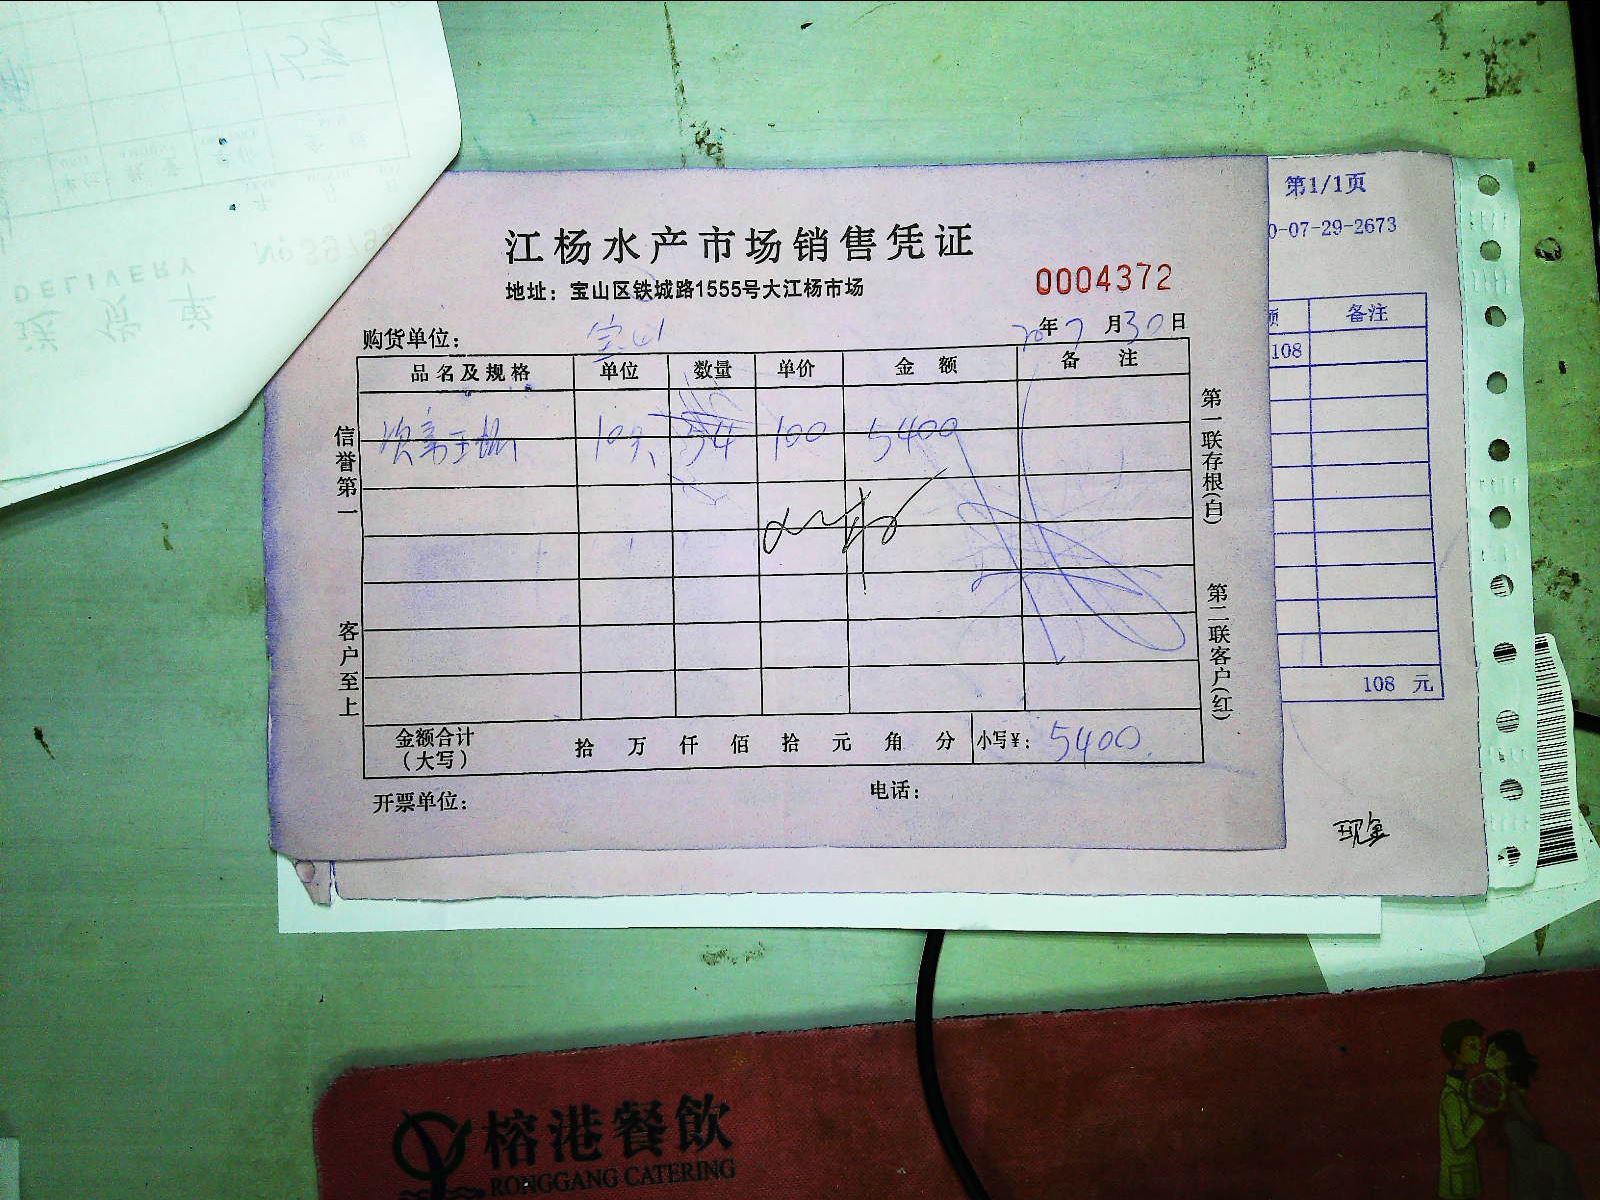 DELIVERY
第1/1页
0-07-29-2673
备注
108
108 元
现金
江杨水产市场销售凭证
地址：宝山区铁城路1555号大江杨市场
0004372
购货单位： 宝山
20年7月30日
品名及规格 单位 数量 单价 金额 备注
54 100 5400
信誉第一
客户至上
第一联存根(白)
第二联客户(红)
金额合计
（大写）
拾 万 仟 佰 拾 元 角 分 小写￥： 5400.
开票单位：
电话：
榕港餐飲
RONGGANG CATERING